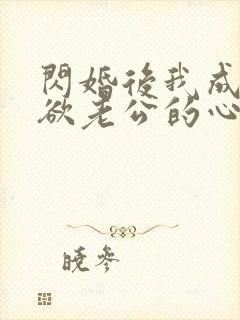 閃婚後我成
欲老公的心
曉參